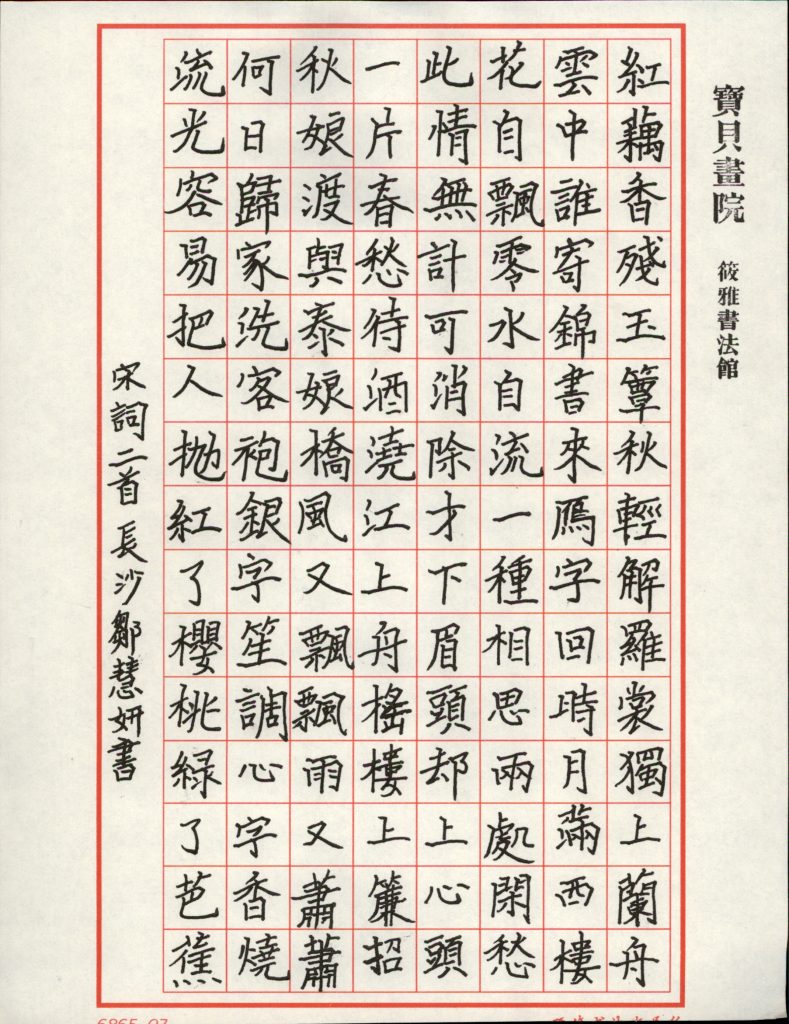 寶貝畫院 筱雅書法館
紅藕香殘玉簟秋輕解羅裳獨上蘭舟
雲中誰寄錦書來鴈字回時月滿西樓
花自飄零水自流一種相思兩處閑愁
此情無計可消除才下眉頭却上心頭
一片春愁待酒澆江上舟榣樓上簾招
秋娘渡與泰娘橋風又飄飄雨又蕭蕭
何日歸家洗客袍銀字笙調心字香燒
流光容易把人抛紅了櫻桃緑了芭蕉
宋詞二首 長沙鄒慧妍書
6865-07